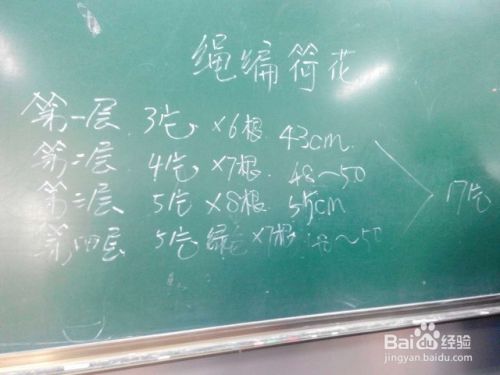 绳编荷花
第一层 3片 ×6根 43cm
第二层 4片 ×7根 48~50
第三层 5片 ×8根 55cm
第四层 5片 绿色 ×7根 48~50
17片
Baidu经验
jingyan.baidu.com